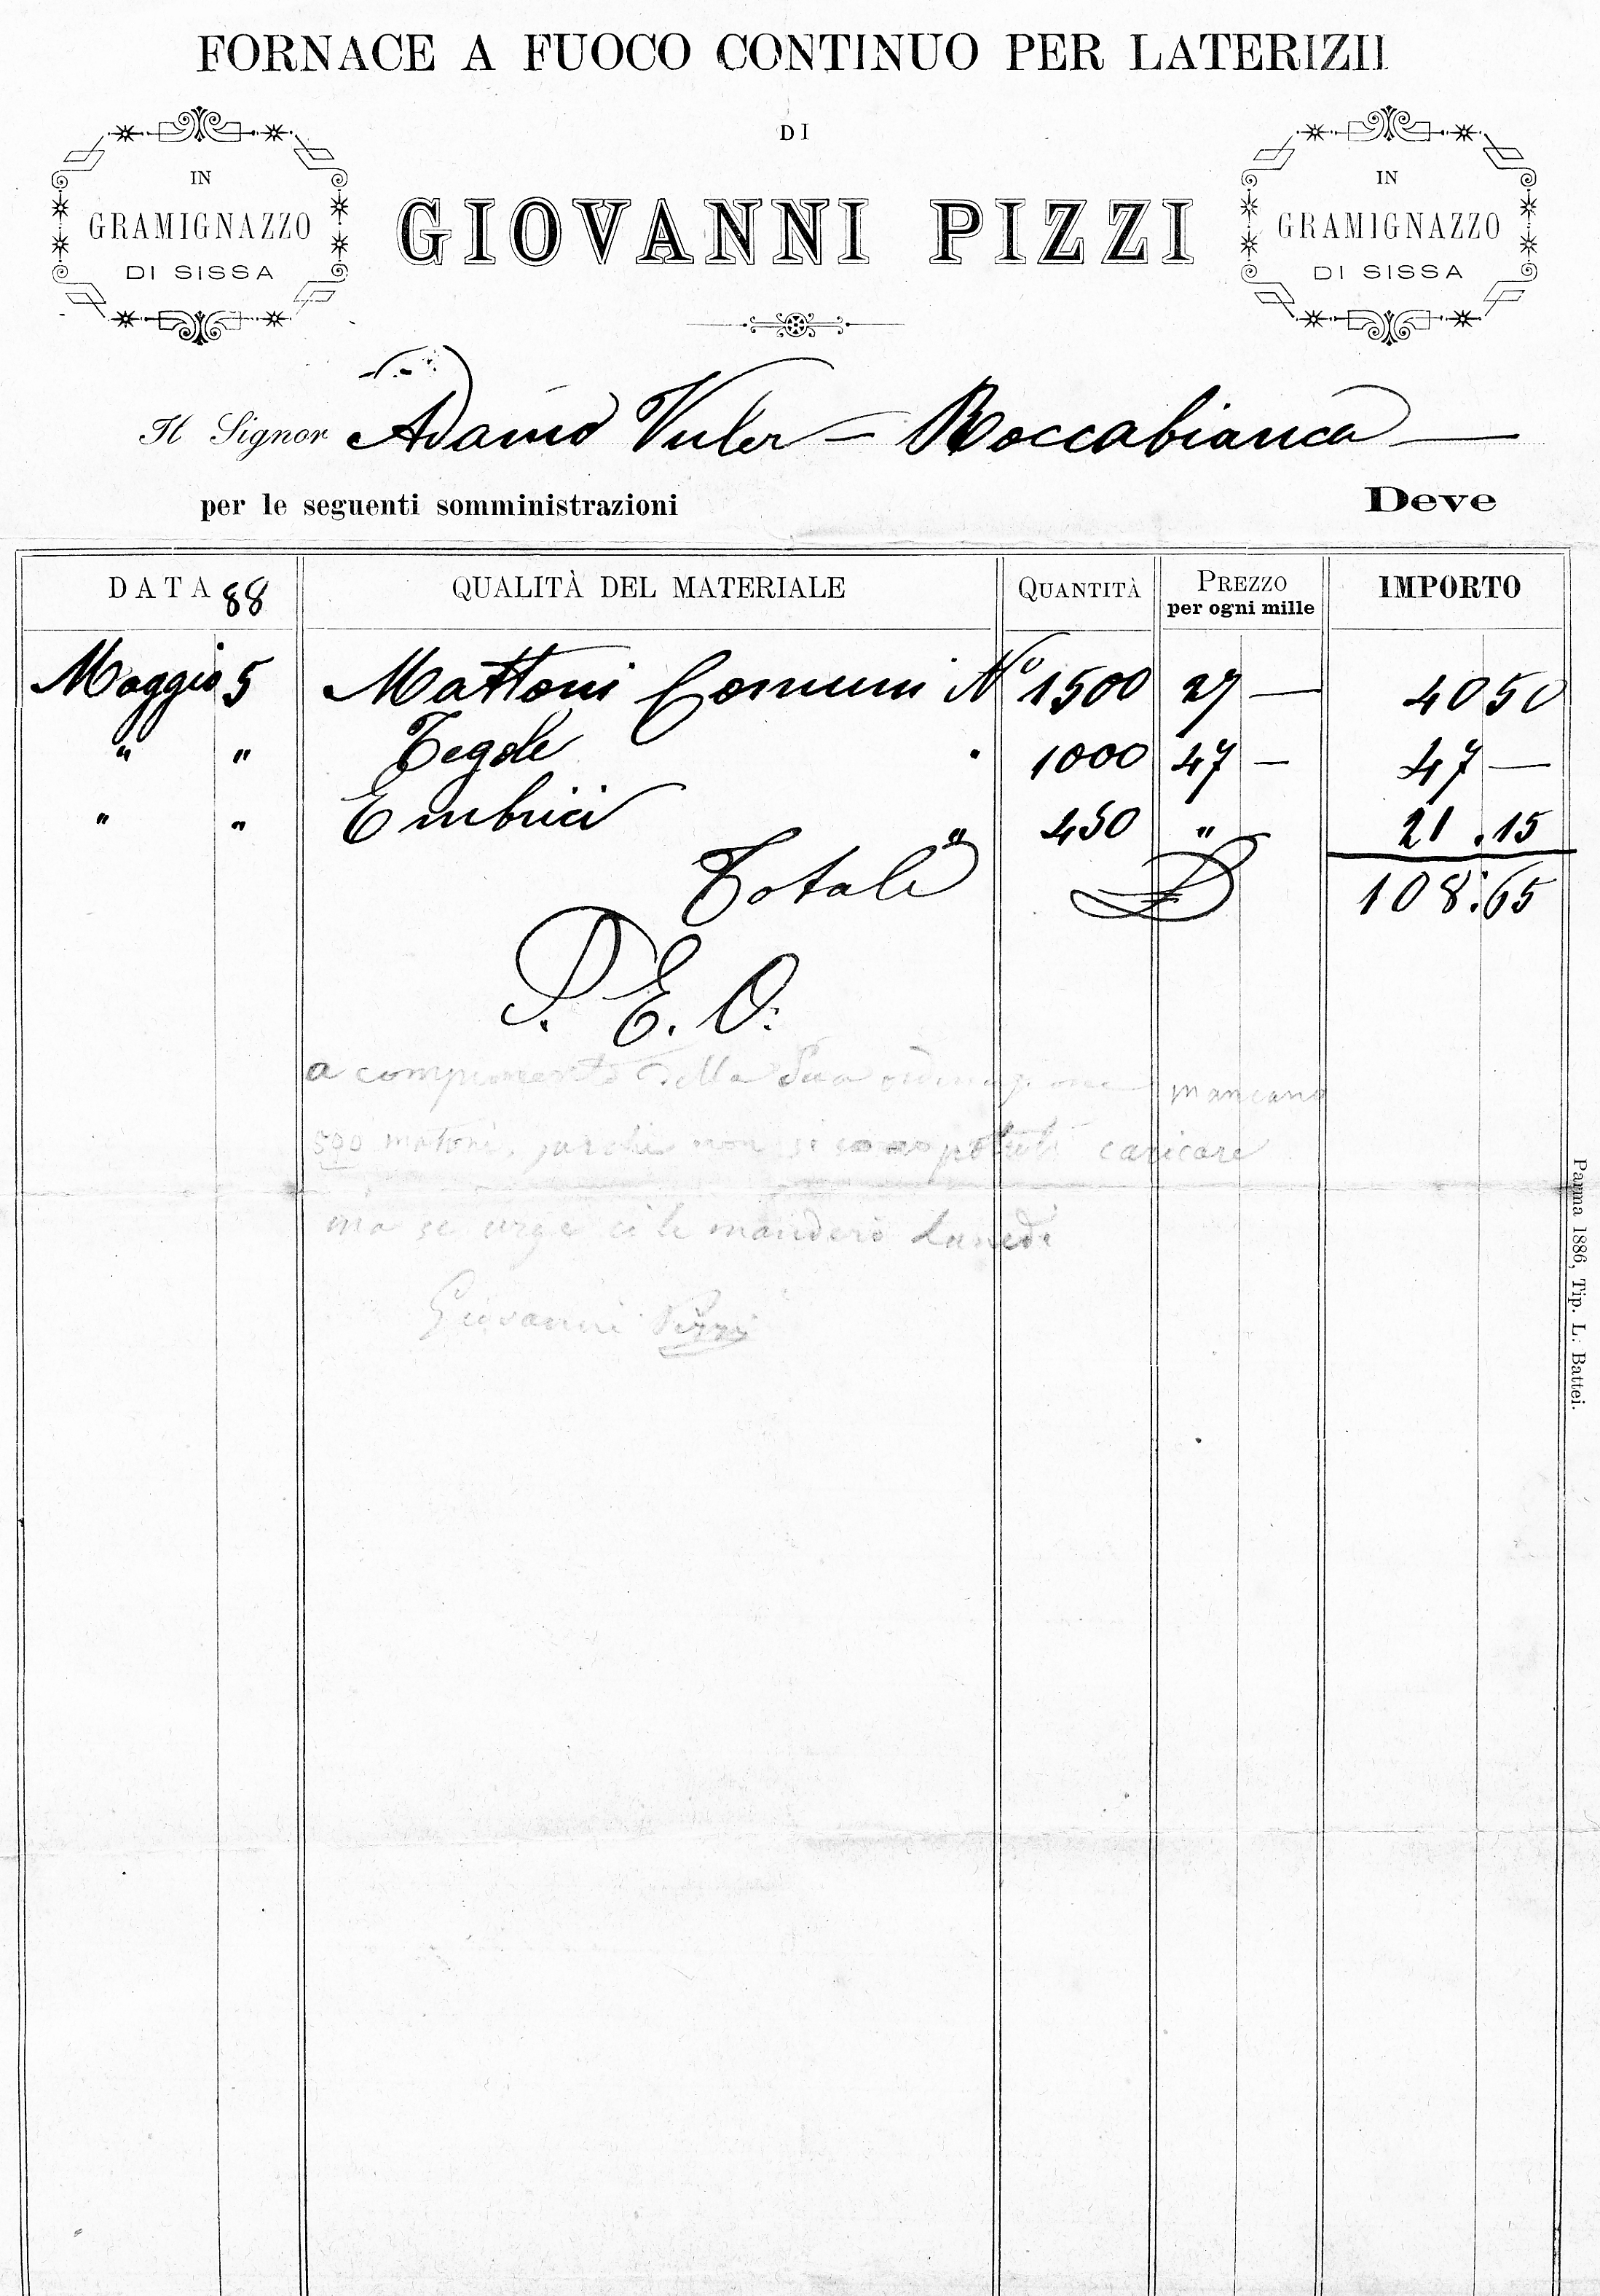 FORNACE A FUOCO CONTINUO PER LATERIZII
DI
IN
GRAMIGNAZZO
DI SISSA
GIOVANNI PIZZI
IN
GRAMIGNAZZO
DI SISSA
Il Signor Adamo Vuler – Roccabianca —
per le seguenti somministrazioni Deve
DATA 88 QUALITÀ DEL MATERIALE QUANTITÀ PREZZO per ogni mille IMPORTO
Maggio 5 Mattoni Comuni No 1500 27 — 40 50
" " Tegole " 1000 47 — 47 —
" " Embrici " 450 " 21.15
Totale 108:65
P. E. O.
a compimento della Sua ordinazione mancano
500 matoni, perchè non si sono potuti caricare
ma se urge ci le manderò Lunedì
Giovanni Pizzi
Parma 1886, Tip. L. Battei.